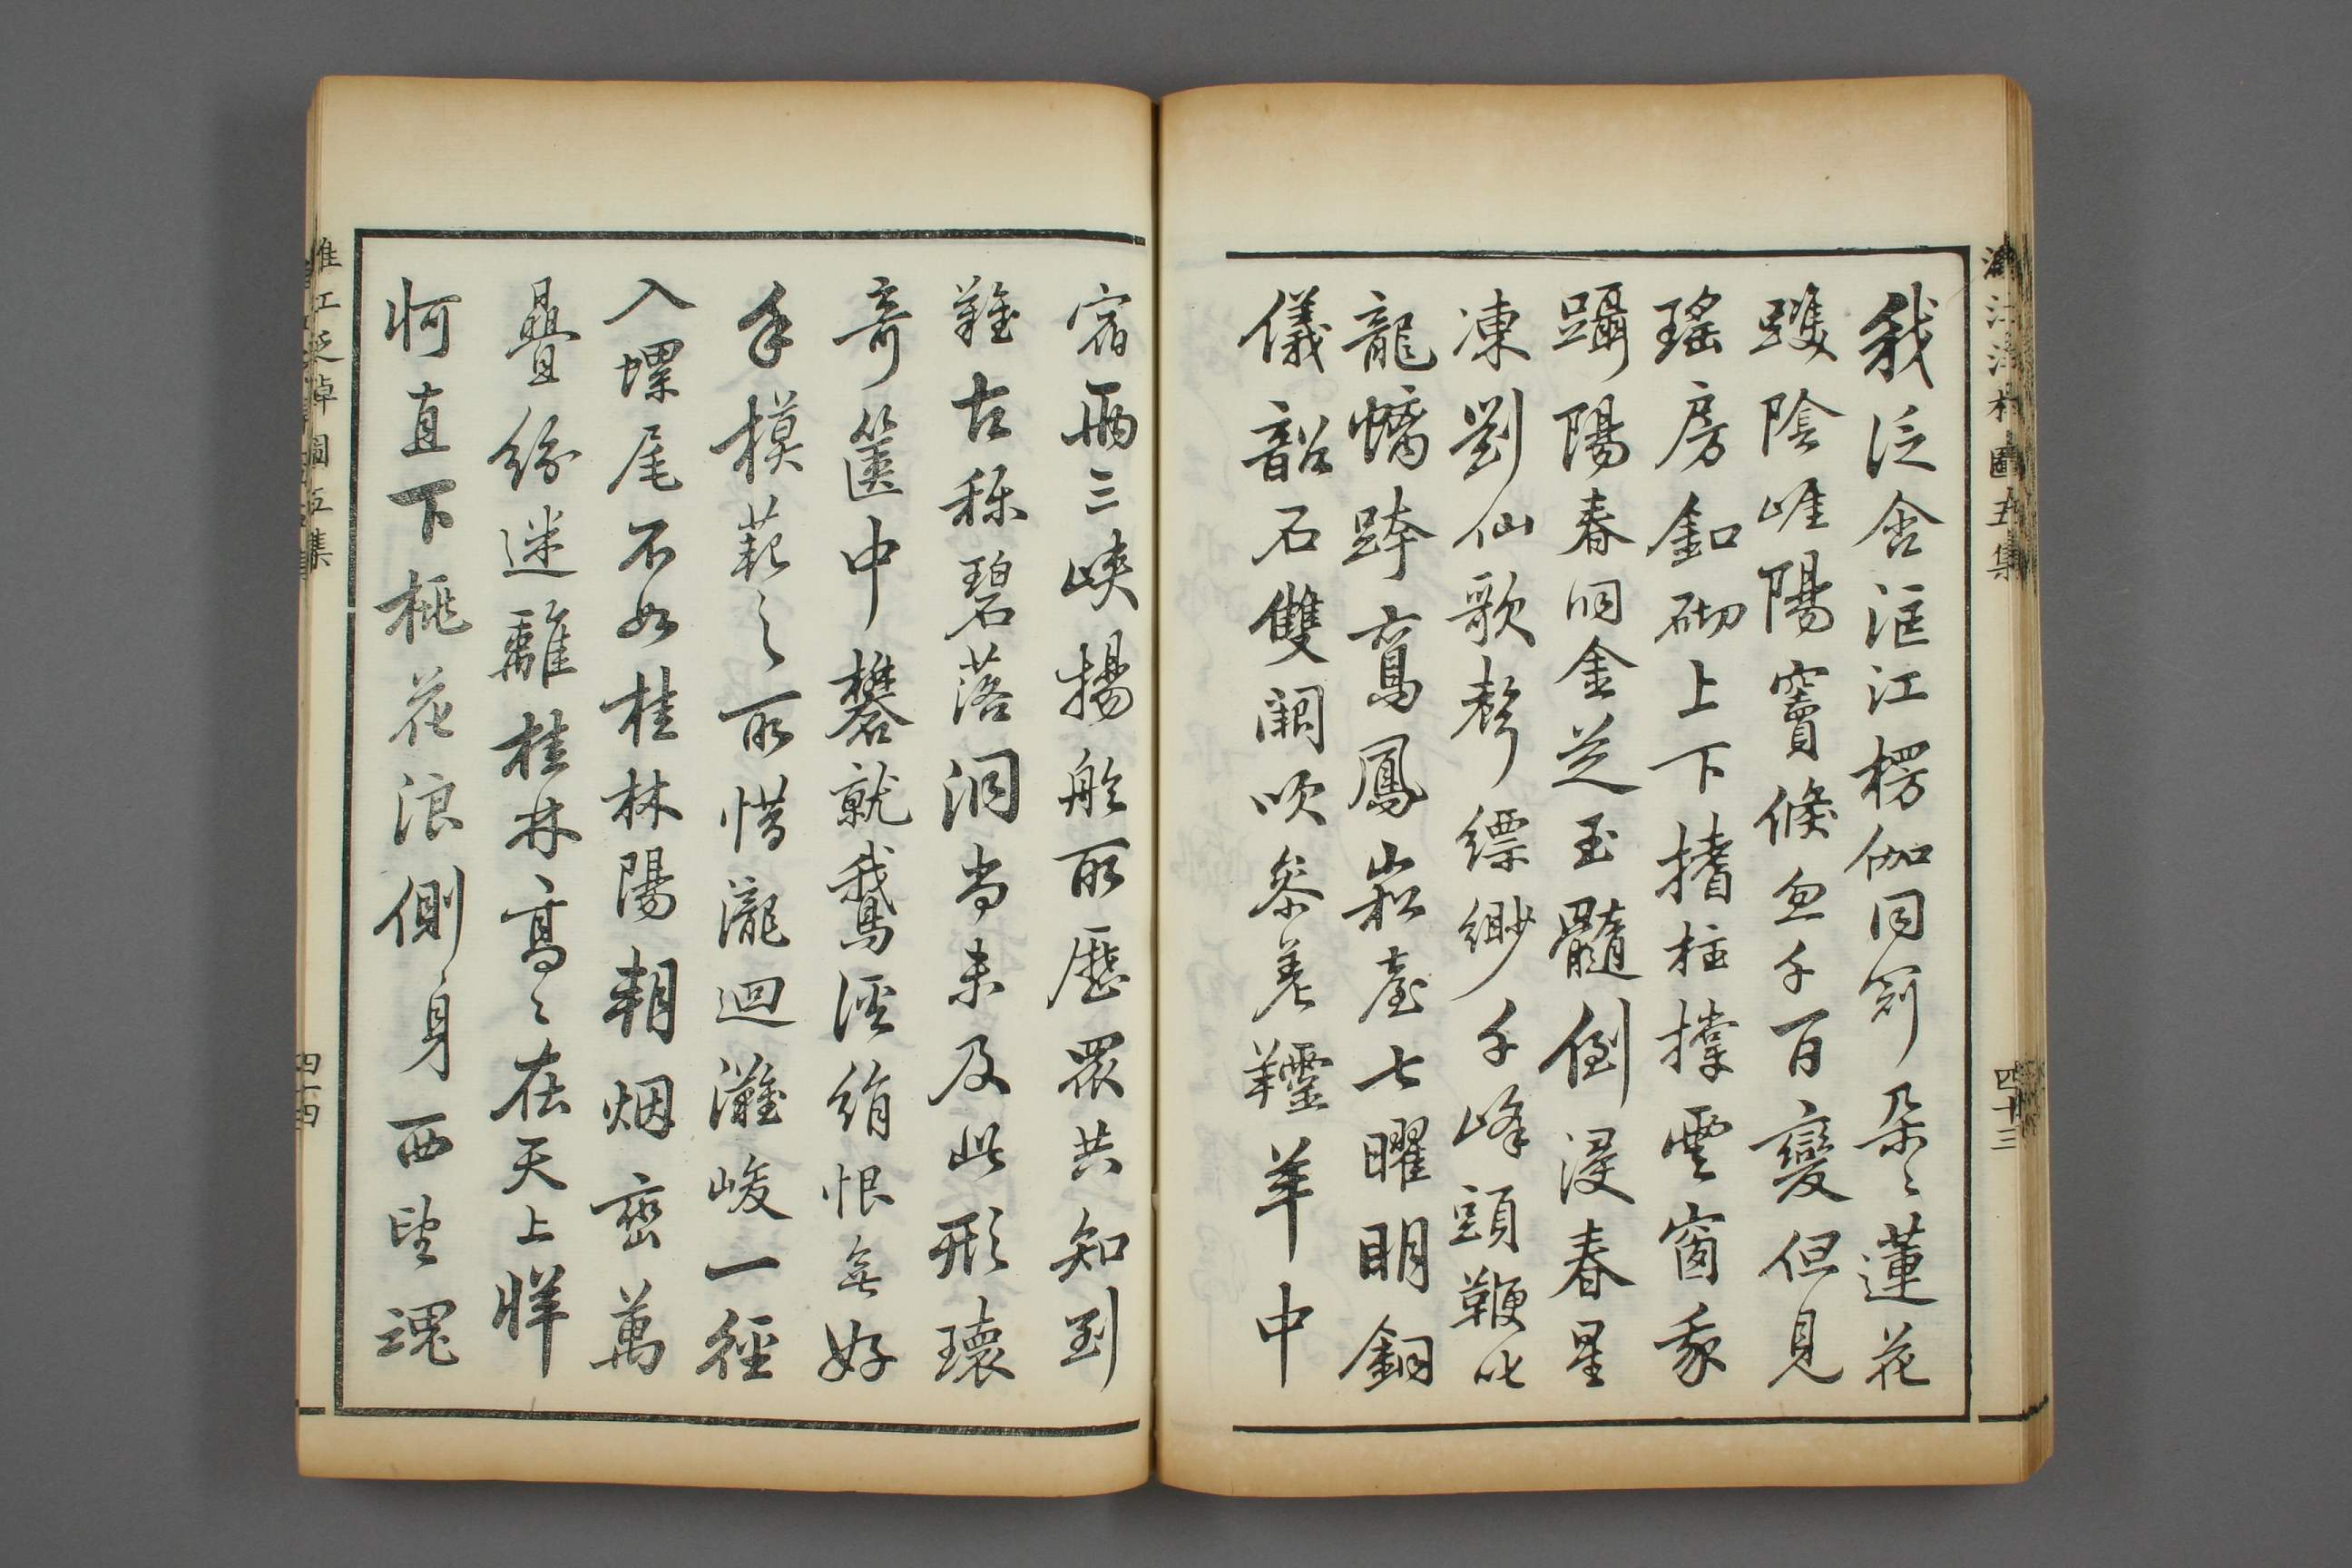 灕江泛棹圖五集
四十三
我泛含洭江楞伽同劖朵〻蓮花
雙陰崖陽竇倏忽千百變但見
瑤房釦砌上下搘柱撐雲窗豕
躡陽春洞金芝玉髓倒浸春星
凍劉仙歌聲縹緲千峰頭鞭叱
龍蟠跨鸞鳳崧臺七曜明銅
儀韶石雙闕吹參差羫羊中
宿兩三峽揚舲所歷眾共知到
難古稱碧落洞尚未及此形瓌
奇篋中礬就鵝溪絹恨無好
手模範之所惜瀧迴灘峻一徑
入螺尾不如桂林陽朔烟巒萬
疊紛迷離桂林高〻在天上牂
牁直下桃花浪側身西望魂
灕江泛棹圖五集
四十四